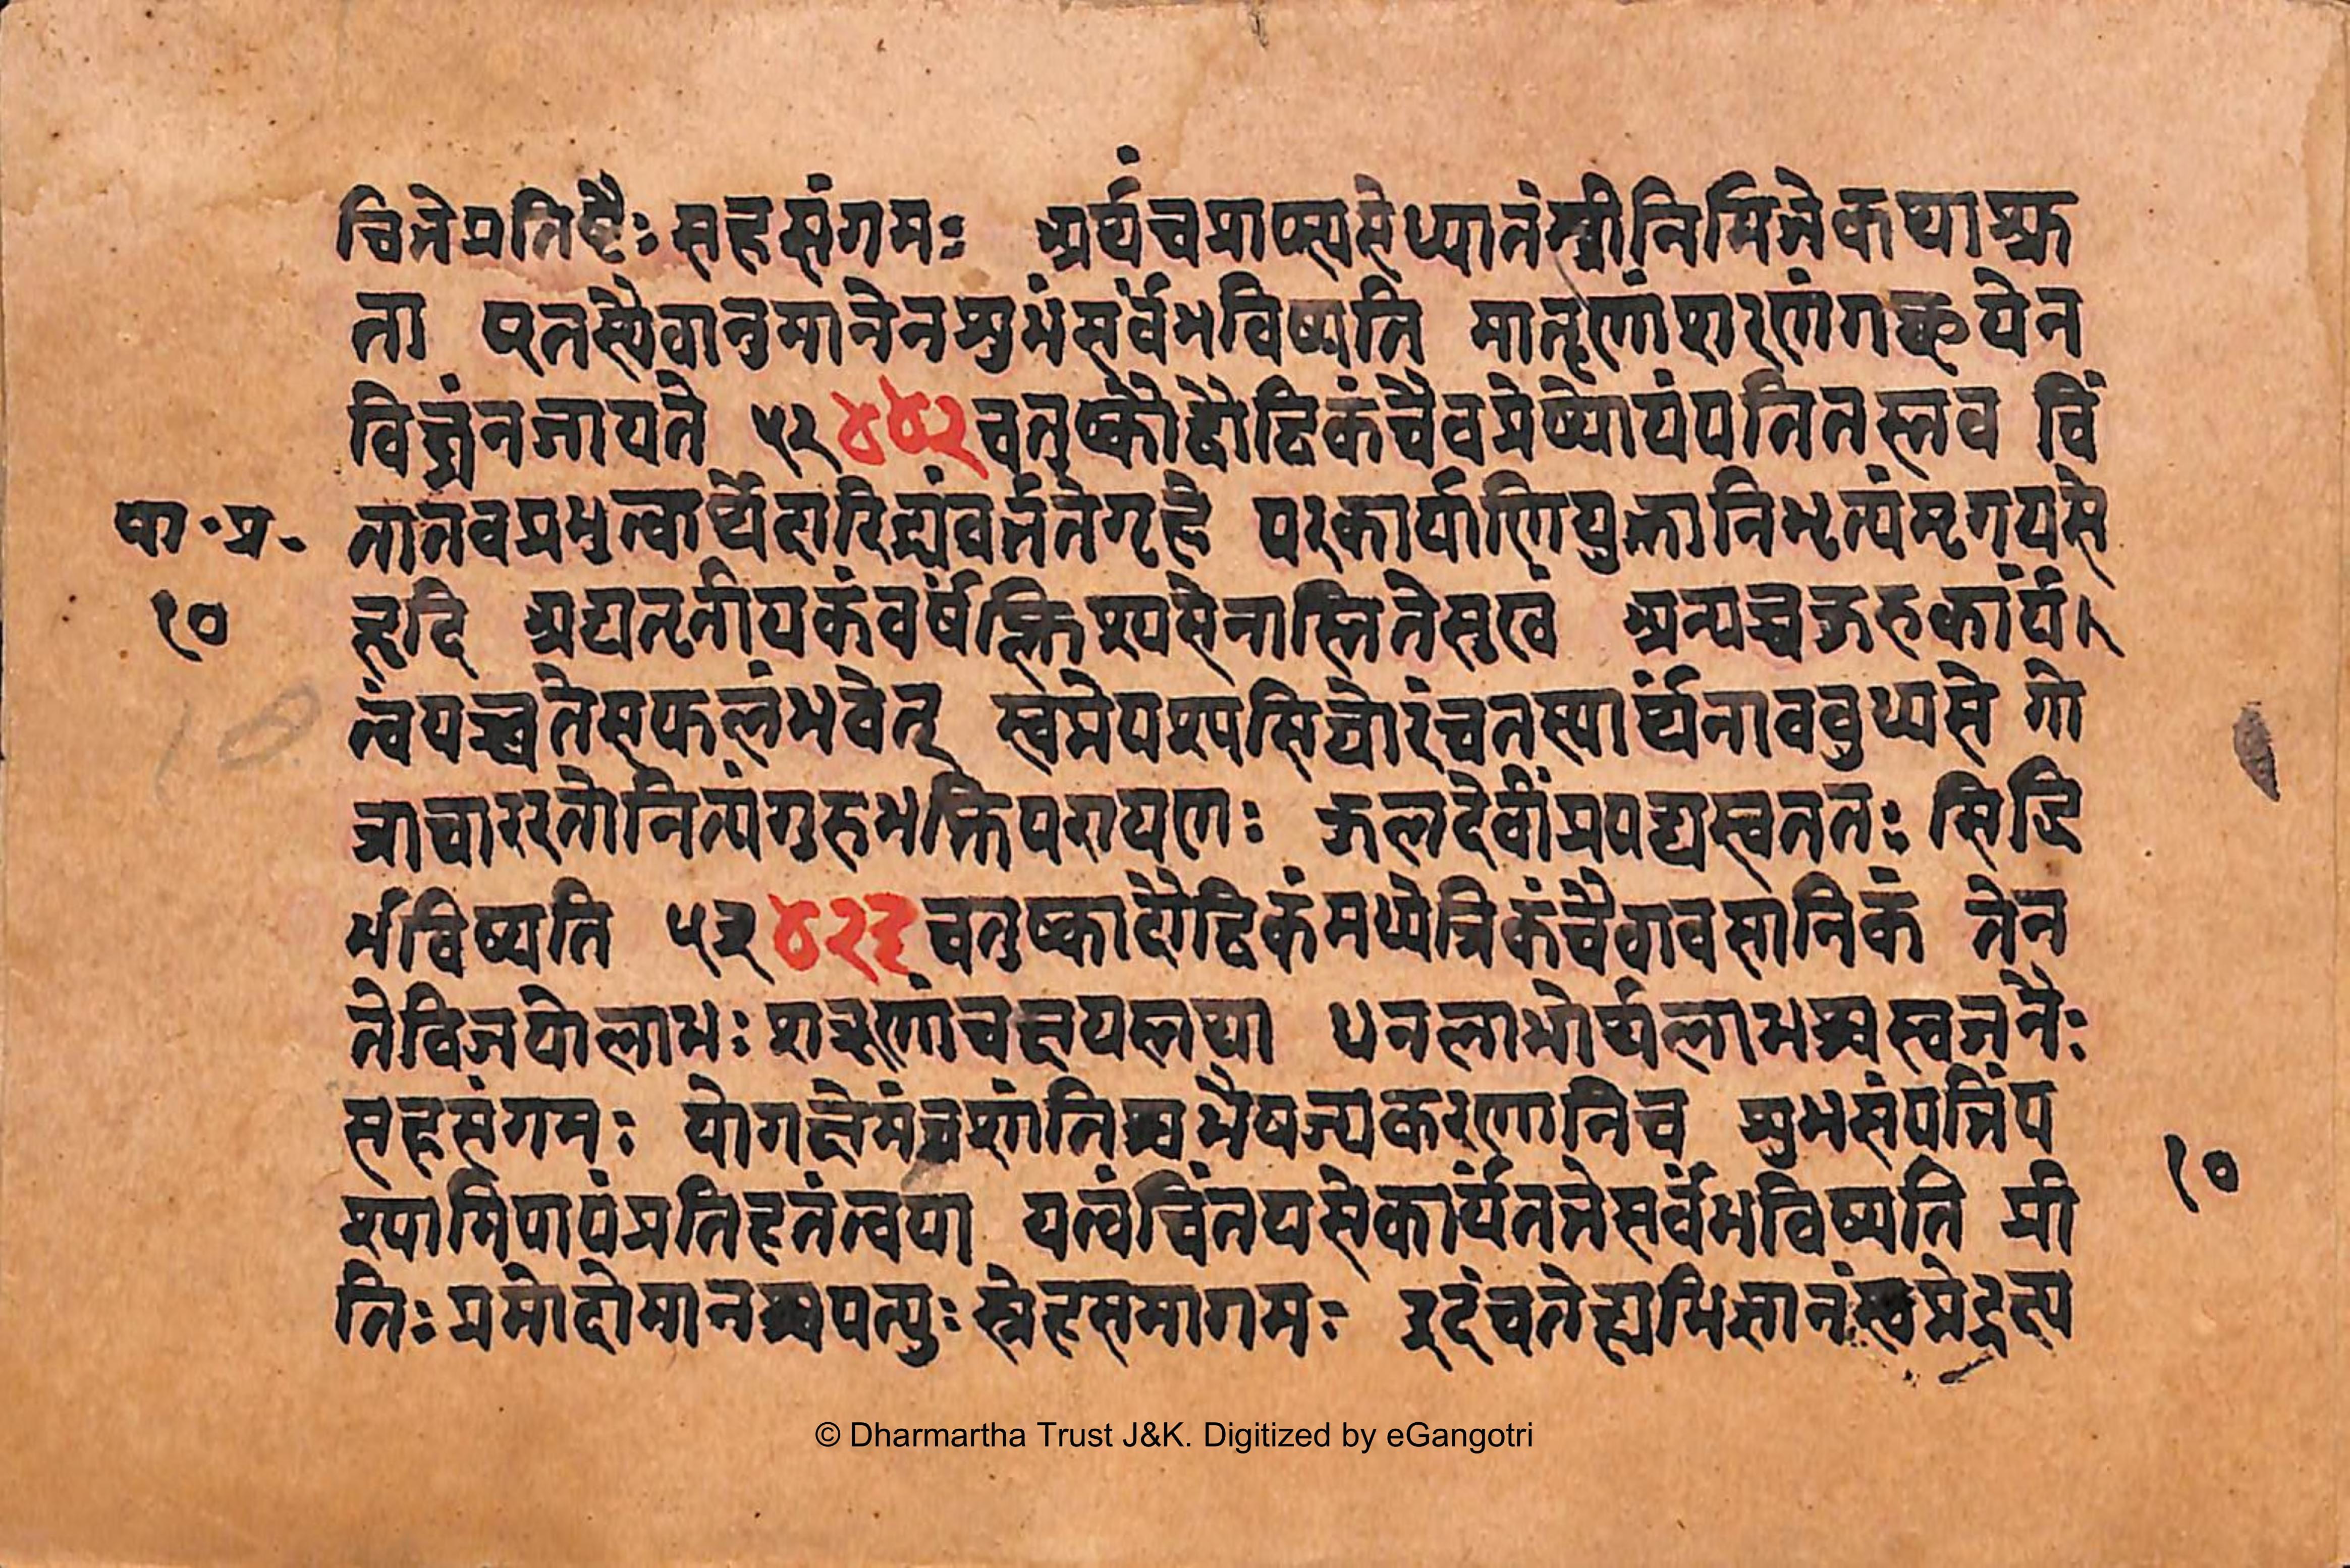 चित्तेप्रतिष्टैःसहसंगमः अर्थंचप्राप्स्यसेध्यातंस्त्रीनिमित्तेकथाश्रु
ता एतस्यैवानुमानेनशुभंसर्वंभविष्यति मातृणांशरणंगच्छयेन
विघ्नंनजायते ५२ ४४२ चतुष्कौद्वौद्विकंचैवप्रेष्योयंपतितस्तव विं
पा॰प्र॰ तातवप्रभुत्वार्थेदारिद्र्यंवर्ततेगृहे परकार्याणियुक्तानिभृत्यंमृगयसे
१० हृदि अद्यतृतीयकंवर्षंक्लिश्यसेनास्तितेसुखं अन्यच्चकुरुकार्यं
त्वंयच्चतेसफलंभवेत् स्वप्नेपश्यसिघोरंचतस्यार्थंनावबुध्यसे गो
त्राचाररतोनित्यंगुरुभक्तिपरायणः कुलदेवींप्रपद्यस्वततः सिद्धि
र्भविष्यति ५३ ४२३ चतुष्कादौद्विकंमध्येत्रिकंचैवावसानिकं तेन
तेविजयोलाभः शत्रूणांचक्षयस्तथा धनलाभोर्थलाभश्चस्वजनैः
सहसंगमः योगक्षेमंचशांतिश्चभैषज्यकरणानिच शुभसंपत्तिंप
श्यामिपापंप्रतिहतंत्वया यत्वंचिंतयसेकार्यंतत्तेसर्वंभविष्यति प्री
तिः प्रमोदोमानश्चपत्युः स्नेहसमागमः इदंचतेह्यभिज्ञानंस्वप्नेद्रक्ष्य
१०
© Dharmartha Trust J&K. Digitized by eGangotri